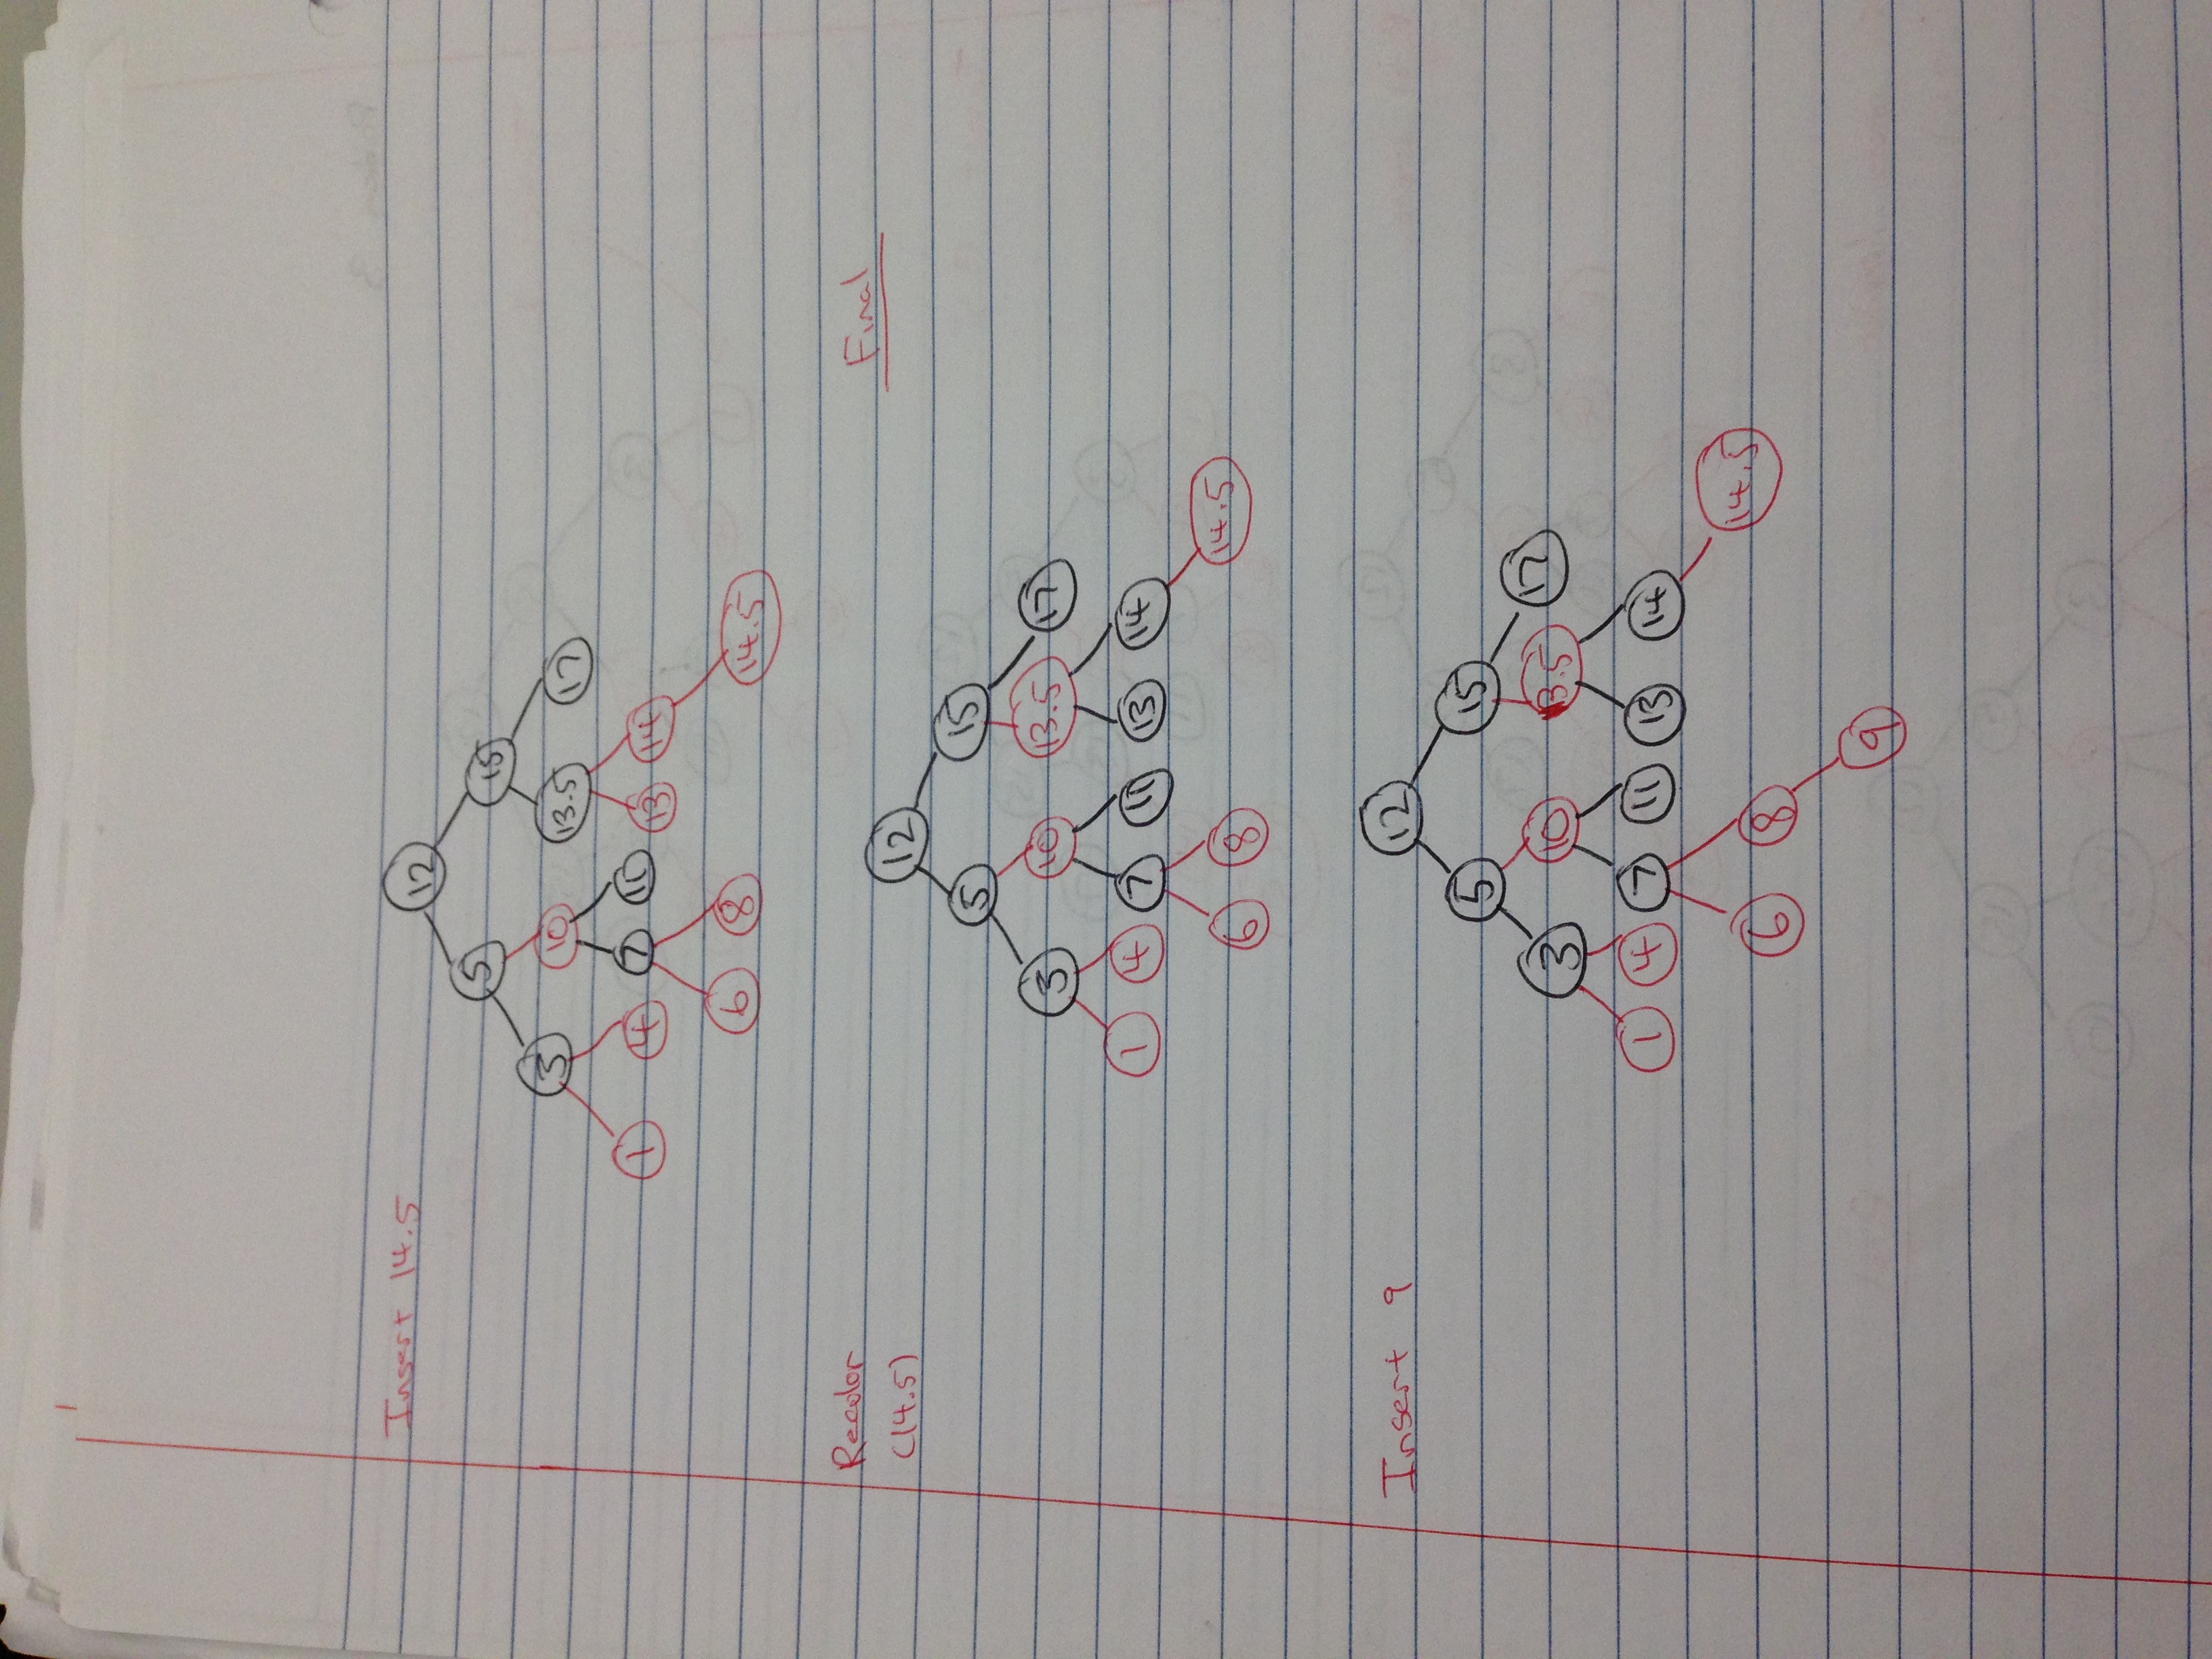 Insert 14.5
12
5 15
3 10 13.5 17
1 4 7 11 13 14
6 8 14.5
Recolor Final
(14.5)
12
5 15
3 10 13.5 17
1 4 7 11 13 14
6 8 14.5
Insert 9
12
5 15
3 10 13.5 17
1 4 7 11 13 14
6 8 14.5
9